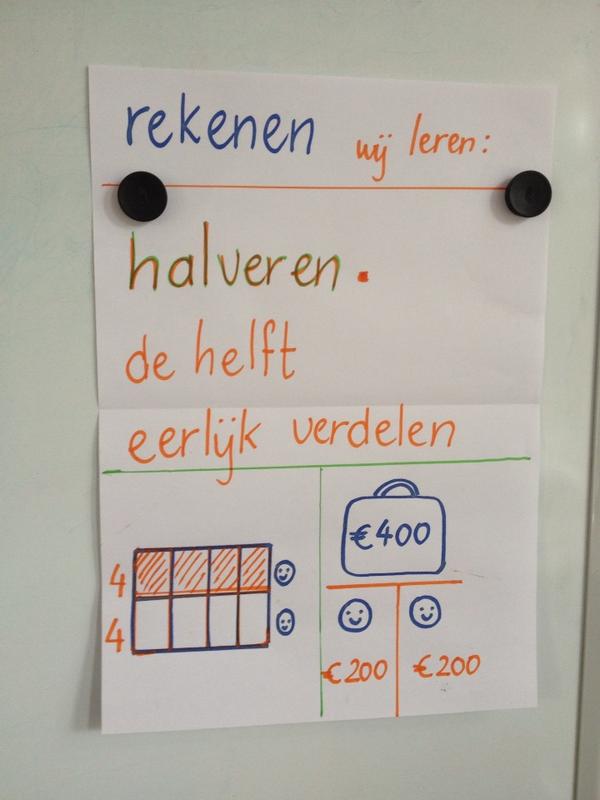 rekenen wij leren:
halveren.
de helft
eerlijk verdelen
4
4
€400
€200 €200